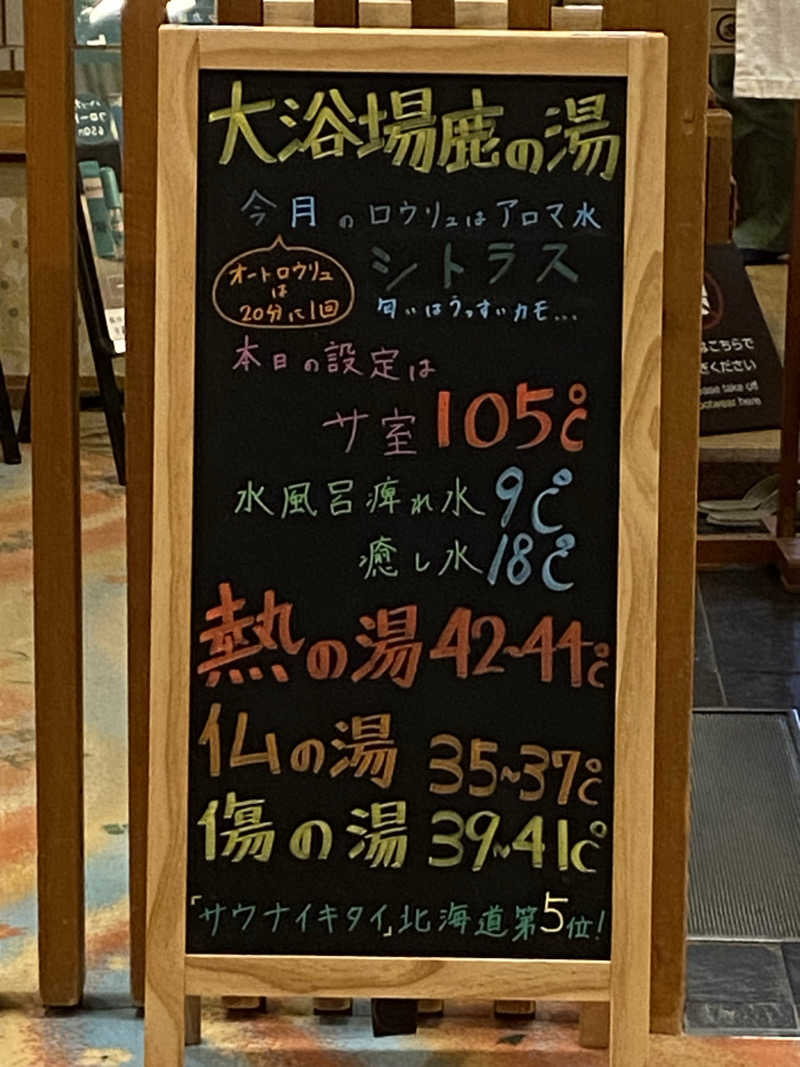 大浴場鹿の湯
今月のロウリュはアロマ水
シトラス
匂いはうっすいカモ...
オートロウリュ
は
20分に1回
本日の設定は
サ室 105℃
水風呂痺れ水 9℃
癒し水 18℃
熱の湯 42~44℃
仏の湯 35~37℃
傷の湯 39~41℃
「サウナイキタイ」北海道第5位!
はこちらで
ください
ease take off
ootwear here